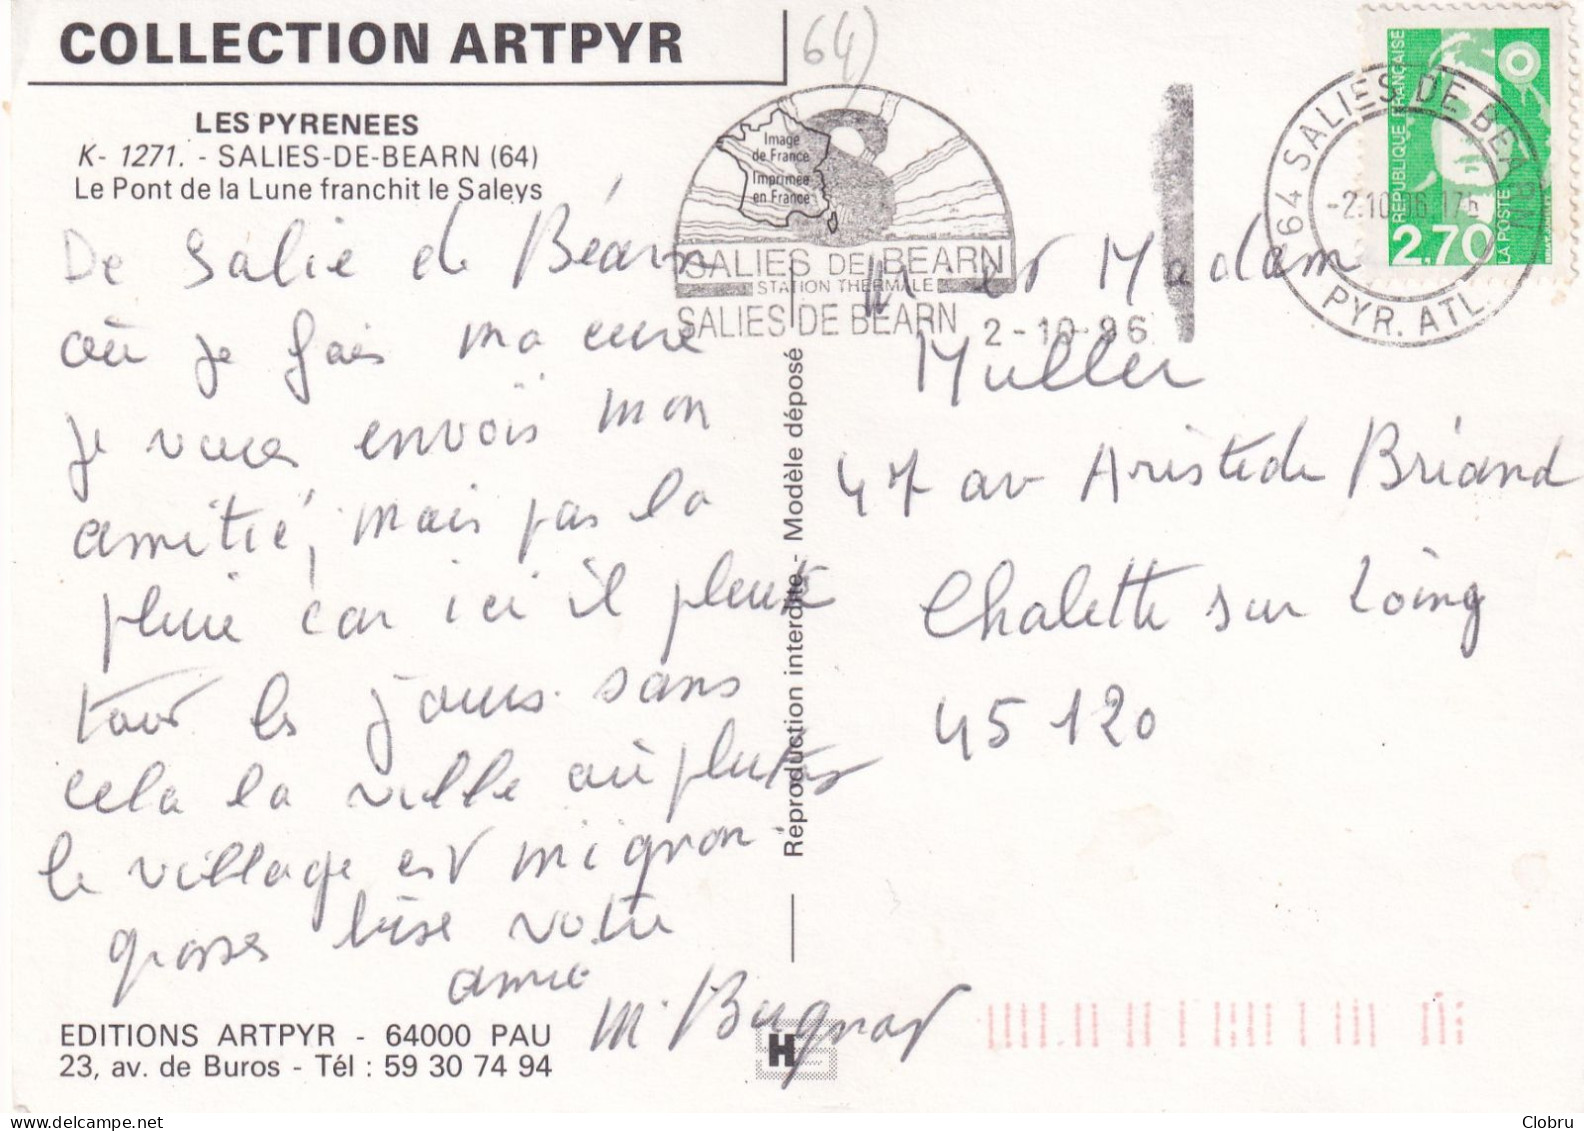 COLLECTION ARTPYR
64)
LES PYRENEES
K- 1271. - SALIES-DE-BEARN (64)
Le Pont de la Lune franchit le Saleys
De Salie de Béarn
où je fais ma cure
je vous envois mon
amitié, mais pas la
pluie car ici il pleut
tous les jours. sans
cela la ville où plutôt
le village est mignon.
grosse bise votre
amie
M. Bugnot
EDITIONS ARTPYR - 64000 PAU
23, av. de Buros - Tél : 59 30 74 94
Reproduction interdite - Modèle déposé
H
Image
de France
Imprimée
en France
SALIES DE BEARN
STATION THERMALE
SALIES DE BEARN 2-10-96
64 SALIES DE BEARN
-2.10.96 17h
PYR. ATL.
REPUBLIQUE FRANÇAISE
2.70
LA POSTE
M et Madam
Muller
47 av Aristide Briand
Chalette sur Loing
45120
Clobru